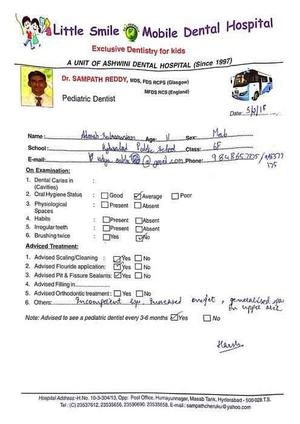 Little Smile Mobile Dental Hospital
Exclusive Dentistry for kids
A UNIT OF ASHWINI DENTAL HOSPITAL (Since 1997)
Dr. SAMPATH REDDY, MDS, FDS RCPS (Glasgow)
MFDS RCS (England)
Pediatric Dentist
Date:
Name: Age: 11 Sex: Male
School: Public School Class:
E-mail: @gmail.com Phone:
On Examination:
1. Dental Caries in :
(Cavities)
2. Oral Hygiene Status : Good Average Poor
3. Physiological : Present Absent
Spaces
4. Habits : Present Absent
5. Irregular teeth : Present Absent
6. Brushing twice : Yes No
Adviced Treatment:
1. Advised Scaling/Cleaning : Yes No
2. Advised Flouride application : Yes No
3. Advised Pit & Fissure Sealants : Yes No
4. Advised Filling in
5. Advised Orthodontic treatment : Yes No
6. Others: Incompetent lips, Increased overjet, generalised
in upper arch
Note: Advised to see a pediatric dentist every 3-6 months Yes No
Hospital Address -H.No. 10-3-304/13, Opp: Post Office, Humayunnagar, Masab Tank, Hyderabad - 500 028 T.S.
Tel : (C) 23537612, 23535656, 23590690, 23535658, E-mail : sampathcheruku@yahoo.com